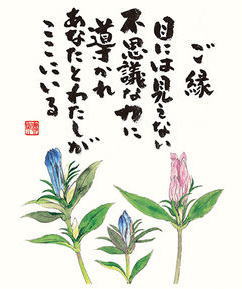 ご縁
目には見えない
不思議な力に
導かれ
あなたとわたしが
ここにいる